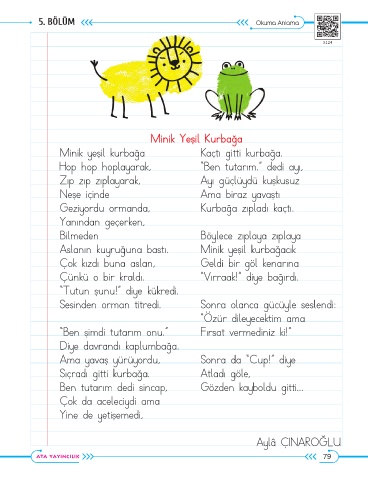 5. BÖLÜM
Okuma Anlama
5124
Minik Yeşil Kurbağa
Minik yeşil kurbağa
Hop hop hoplayarak,
Zıp zıp zıplayarak,
Neşe içinde
Geziyordu ormanda,
Yanından geçerken,
Bilmeden
Aslanın kuyruğuna bastı.
Çok kızdı buna aslan,
Çünkü o bir kraldı.
"Tutun şunu!" diye kükredi.
Sesinden orman titredi.
"Ben şimdi tutarım onu."
Diye davrandı kaplumbağa.
Ama yavaş yürüyordu,
Sıçradı gitti kurbağa.
Ben tutarım dedi sincap,
Çok da aceleciydi ama
Yine de yetişemedi,
Kaçtı gitti kurbağa.
"Ben tutarım." dedi ayı,
Ayı güçlüydü kuşkusuz
Ama biraz yavaştı
Kurbağa zıpladı kaçtı.
Böylece zıplaya zıplaya
Minik yeşil kurbağacık
Geldi bir göl kenarına
"Vırraak!" diye bağırdı.
Sonra olanca gücüyle seslendi:
"Özür dileyecektim ama
Fırsat vermediniz ki!"
Sonra da "Cup!" diye
Atladı göle,
Gözden kayboldu gitti...
Aylâ ÇINAROĞLU
ATA YAYINCILIK
79